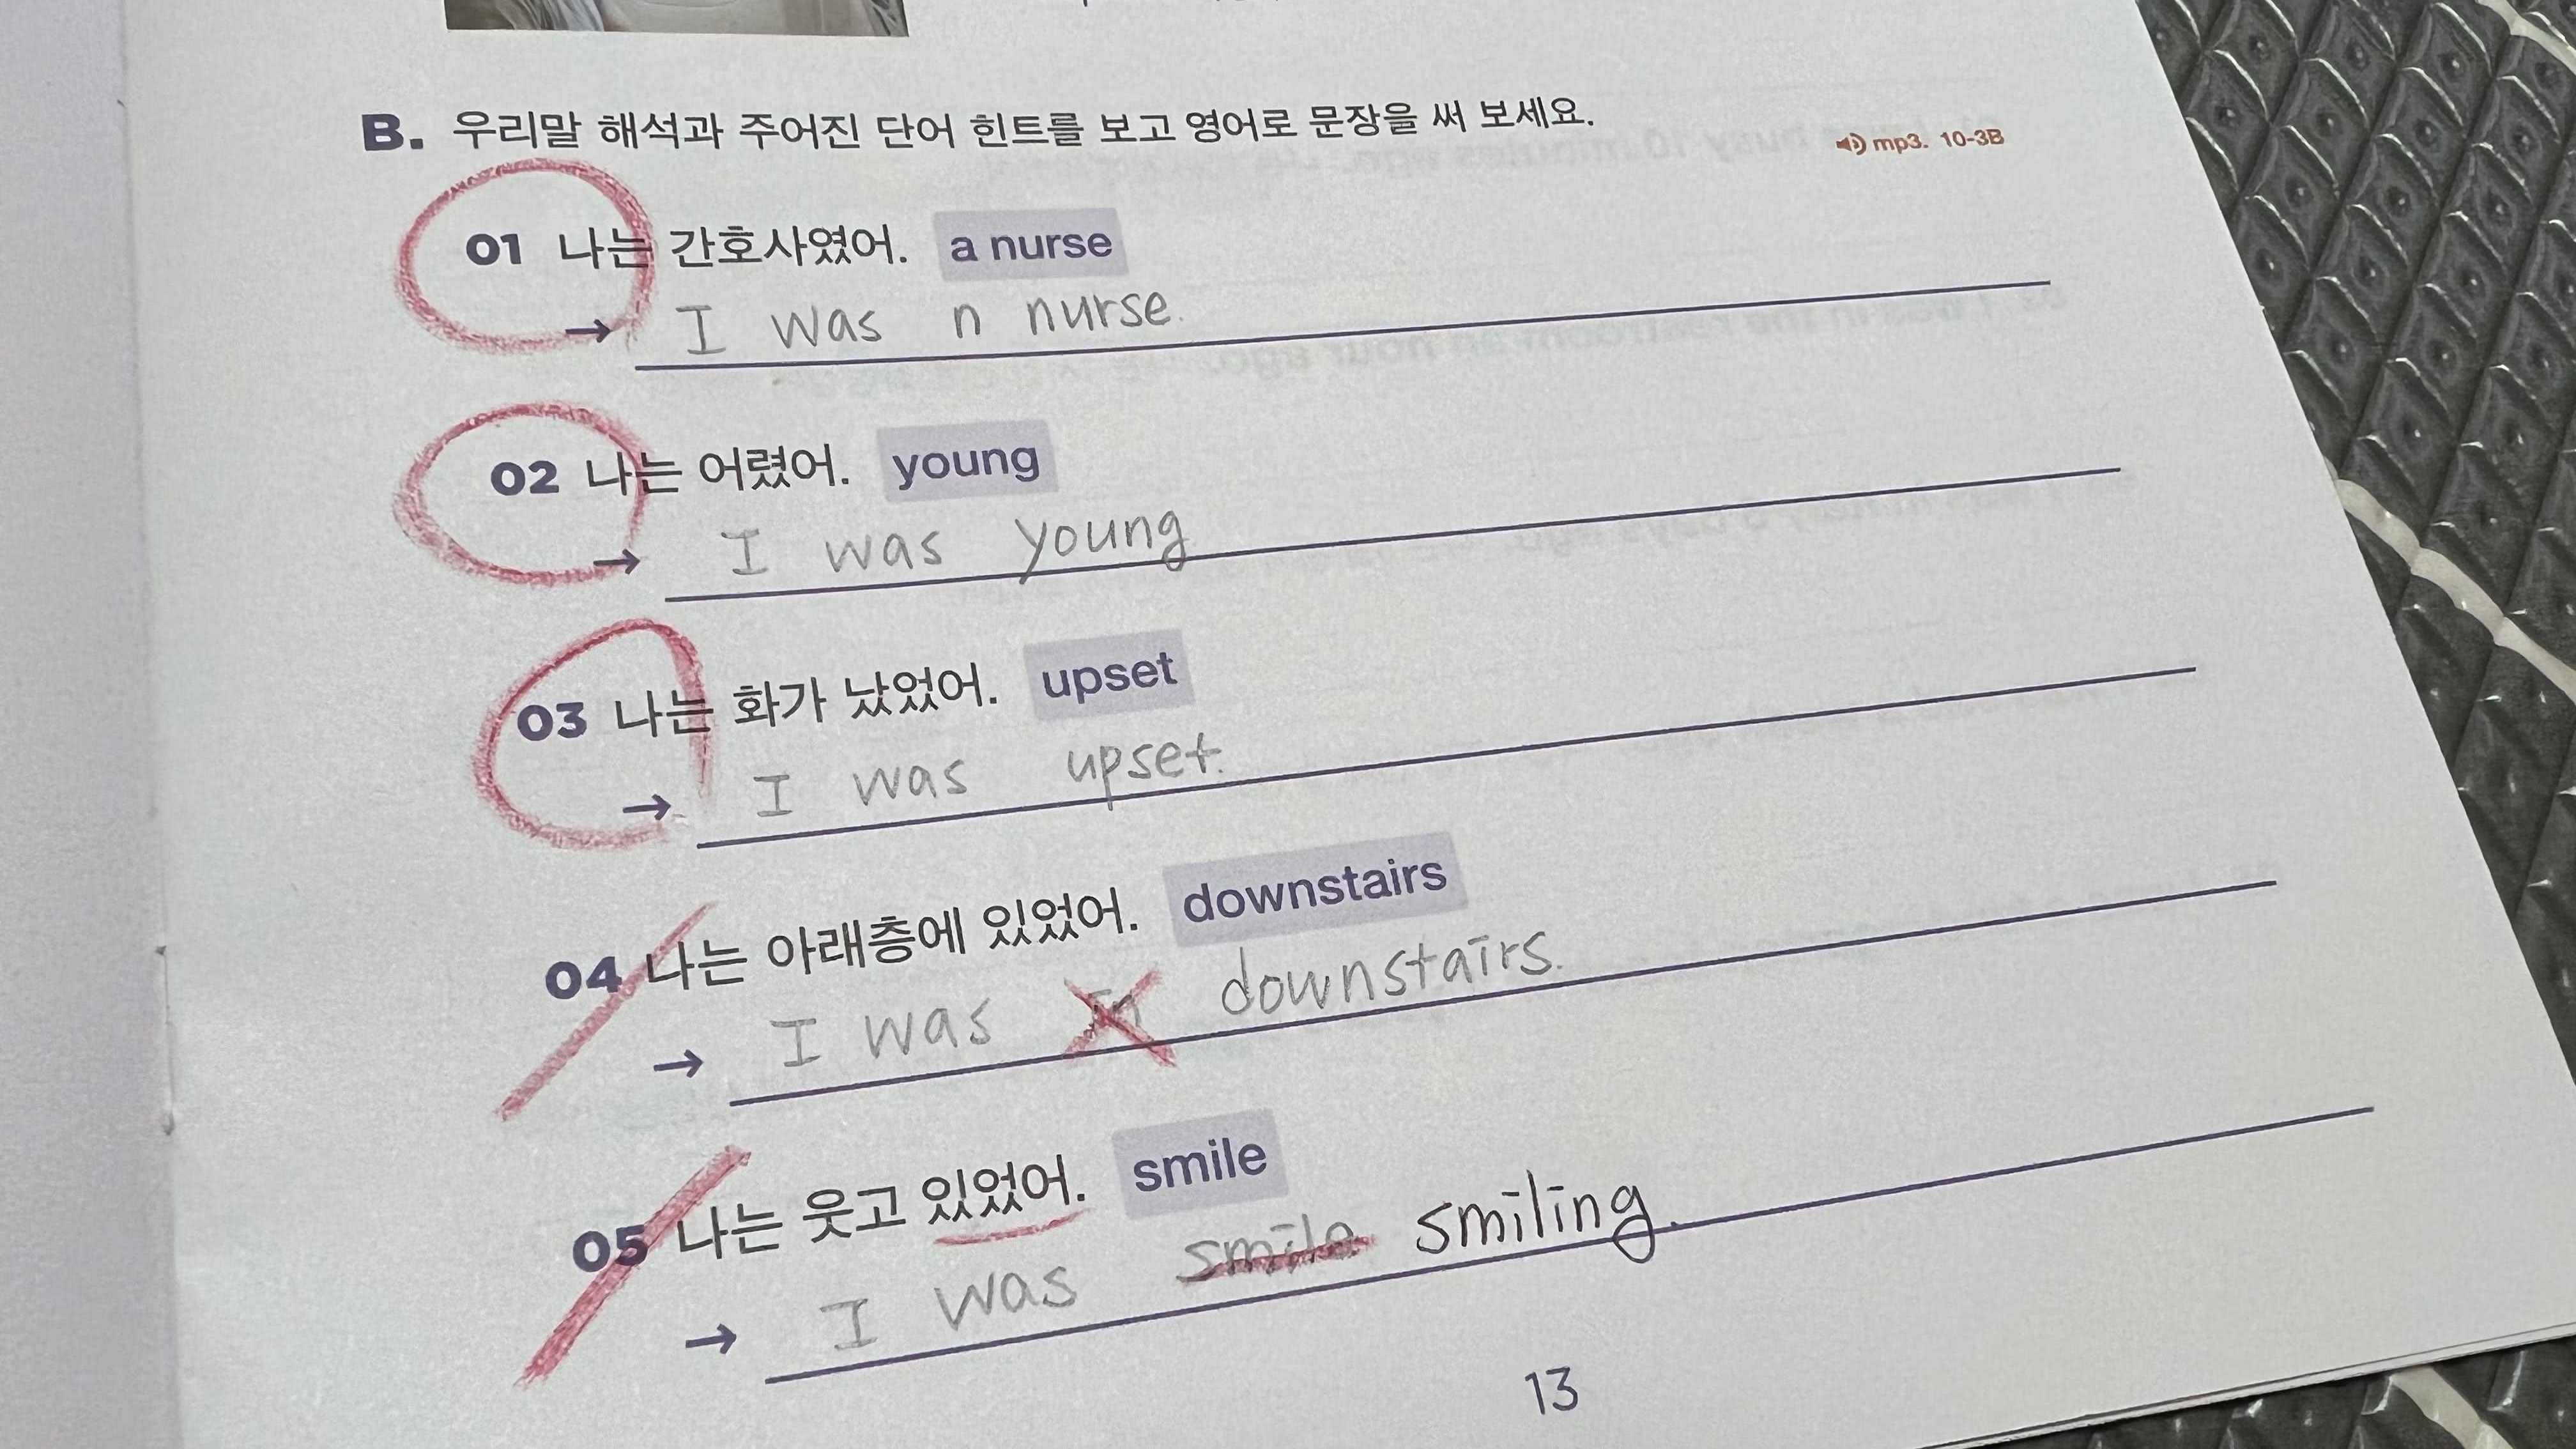 B. 우리말 해석과 주어진 단어 힌트를 보고 영어로 문장을 써 보세요.
mp3. 10-3B
01 나는 간호사였어. a nurse
→ I was n nurse.
02 나는 어렸어. young
→ I was young
03 나는 화가 났었어. upset
→ I was upset.
04 나는 아래층에 있었어. downstairs
→ I was in downstairs.
05 나는 웃고 있었어. smile
→ I was smile smiling.
13